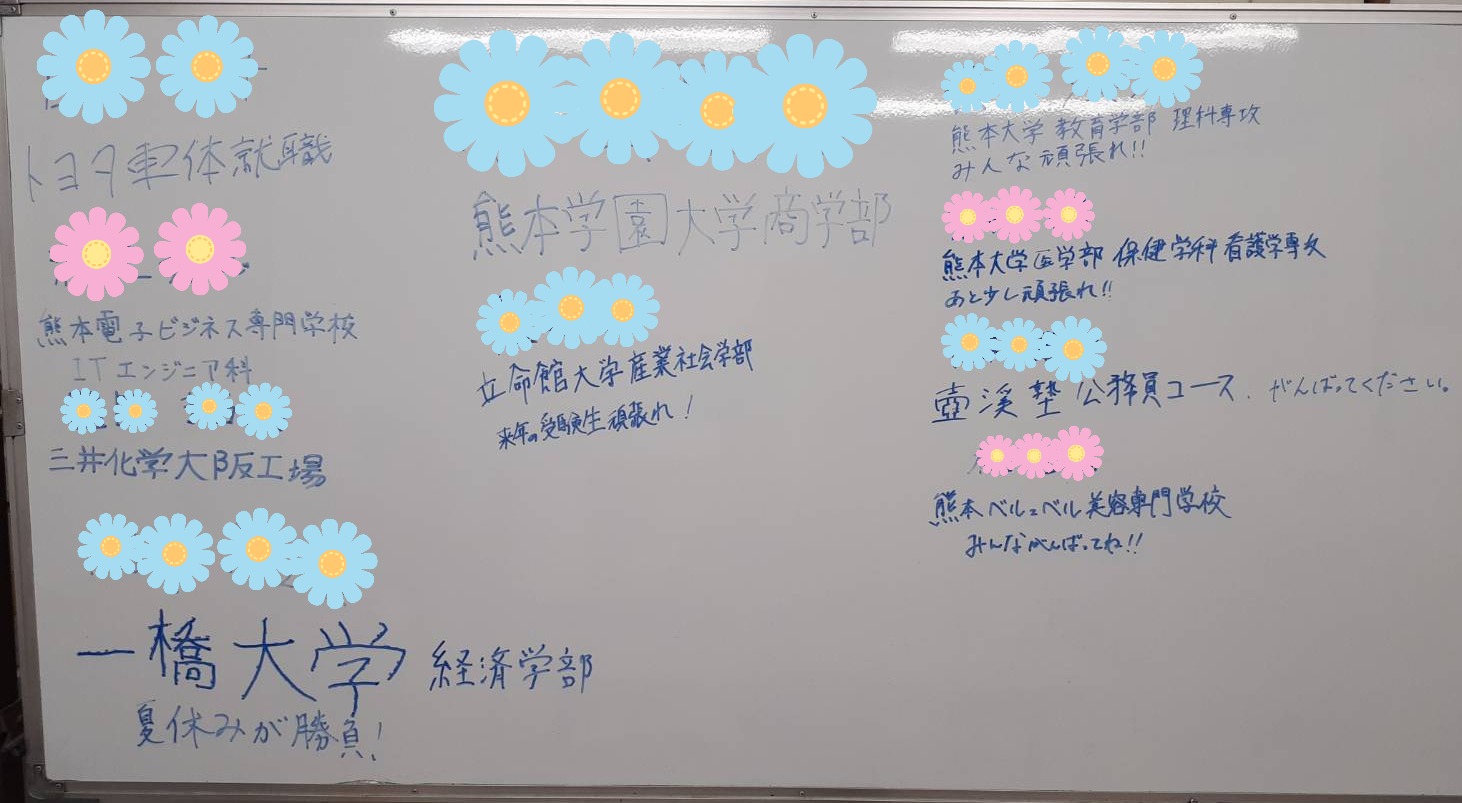 トヨタ車体就職
熊本電子ビジネス専門学校
ITエンジニア科
三井化学大阪工場
一橋大学 経済学部
夏休みが勝負!
熊本学園大学商学部
立命館大学産業社会学部
来年の受験生頑張れ!
熊本大学 教育学部 理科専攻
みんな頑張れ!!
熊本大学医学部 保健学科 看護学専攻
あと少し頑張れ!!
壺溪塾 公務員コース. がんばってください。
熊本ベルェベル美容専門学校
みんながんばってね!!